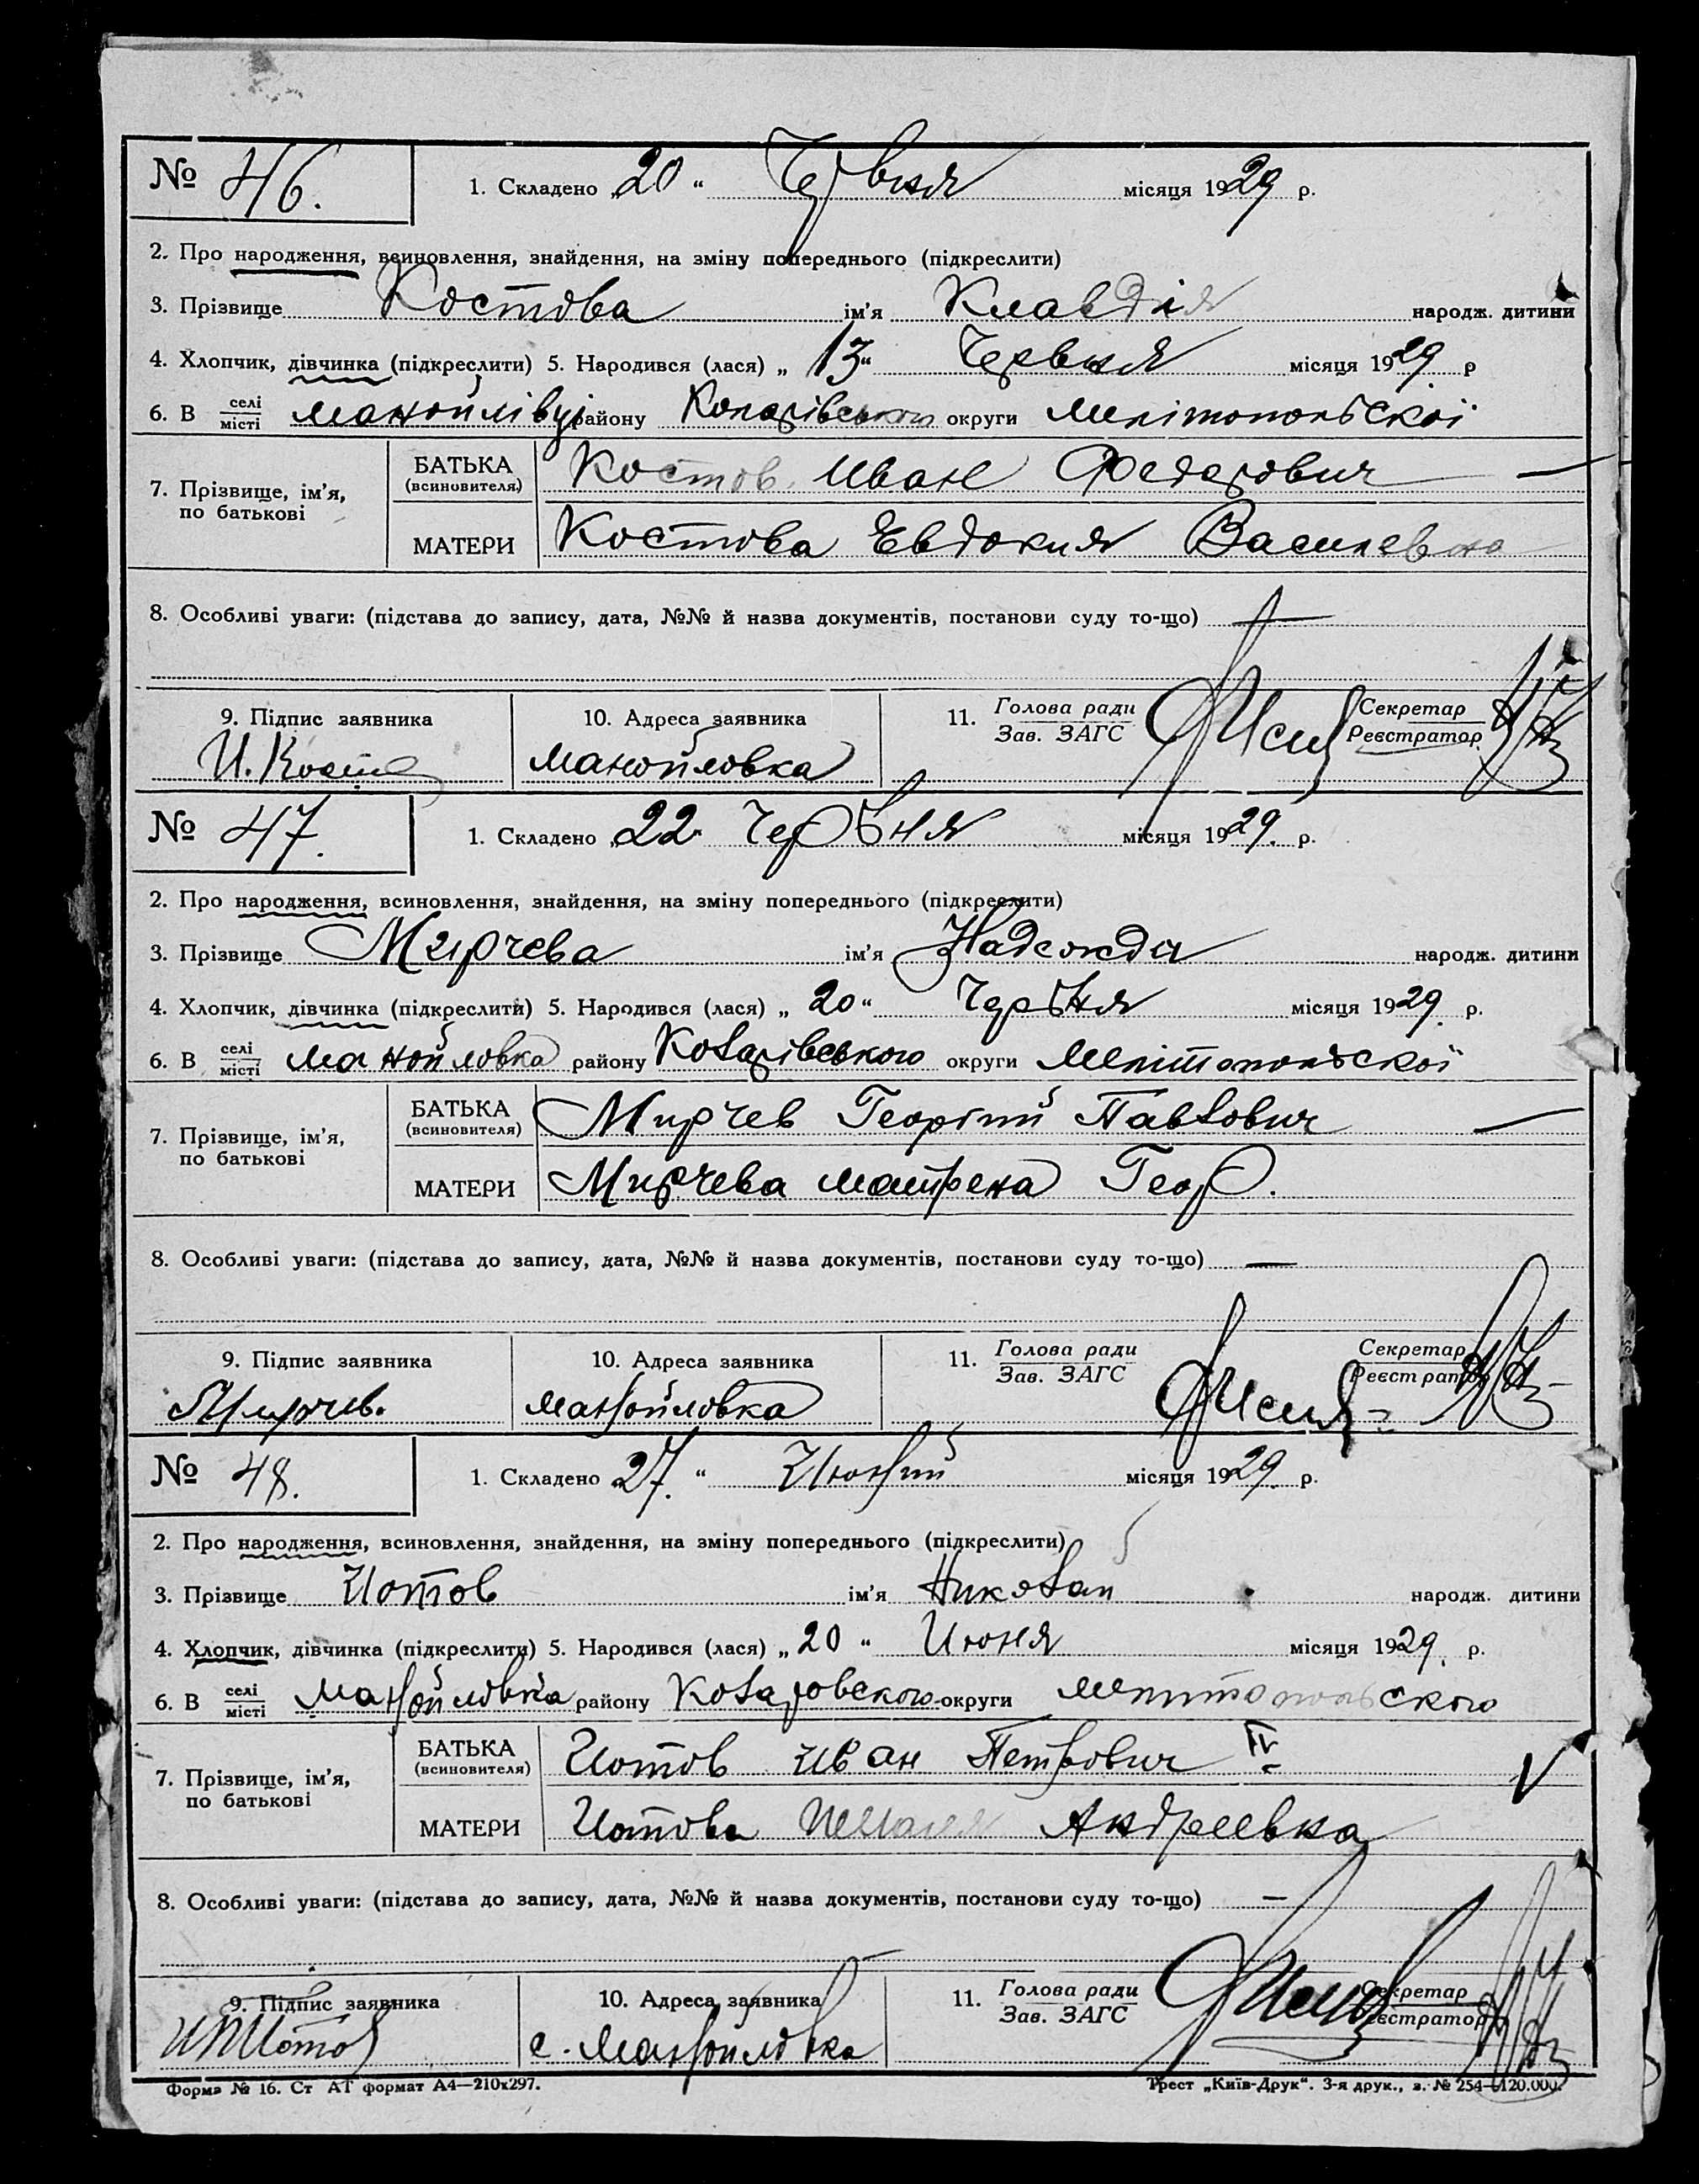 № 46. 1. Складено „20“ Червня місяця 1929 р.
2. Про народження, всиновлення, знайдення, на зміну попереднього (підкреслити)
3. Прізвище Костова ім'я Клавдія народж. дитини
4. Хлопчик, дівчинка (підкреслити) 5. Народився (лася) „13“ Червня місяця 1929 р
6. В селі місті Манойлівці району округи Мелітопольскої
7. Прізвище, ім'я, по батькові
БАТЬКА (всиновителя) Костов Иван Федорович —
МАТЕРИ Костова Евдокия Василевна
8. Особливі уваги: (підстава до запису, дата, №№ й назва документів, постанови суду то-що) —
9. Підпис заявника 10. Адреса заявника 11. Голова ради Зав. ЗАГС Секретар Реєстратор
И. Костов Манойловка
№ 47. 1. Складено „22“ Червня місяця 1929. р.
2. Про народження, всиновлення, знайдення, на зміну попереднього (підкреслити)
3. Прізвище Мирчева ім'я Надежда народж. дитини
4. Хлопчик, дівчинка (підкреслити) 5. Народився (лася) „20“ Червня місяця 1929. р.
6. В селі місті Манойловка району Коларівського округи Мелітопольскої
7. Прізвище, ім'я, по батькові
БАТЬКА (всиновителя) Мирчев Георгий Павлович —
МАТЕРИ Мирчева Матрена Геор.
8. Особливі уваги: (підстава до запису, дата, №№ й назва документів, постанови суду то-що) —
9. Підпис заявника 10. Адреса заявника 11. Голова ради Зав. ЗАГС Секретар Реєстратор
Мирчев. Манойловка
№ 48. 1. Складено 27. “ Июний місяця 1929. р.
2. Про народження, всиновлення, знайдення, на зміну попереднього (підкреслити)
3. Прізвище Иотов ім'я Николай народж. дитини
4. Хлопчик, дівчинка (підкреслити) 5. Народився (лася) „20“ Июня місяця 1929. р.
6. В селі місті Манойловка району Коларовского округи Мелитопольского
7. Прізвище, ім'я, по батькові
БАТЬКА (всиновителя) Иотов Иван Петрович IV V
МАТЕРИ Иотова Андреевна
8. Особливі уваги: (підстава до запису, дата, №№ й назва документів, постанови суду то-що) —
9. Підпис заявника 10. Адреса заявника 11. Голова ради Зав. ЗАГС Секретар Реєстратор
ИПИотов с. Манойловка
Форма № 16. Ст АТ формат А4—210х297. Трест „Київ-Друк“. 3-я друк., з. № 254—120.000.